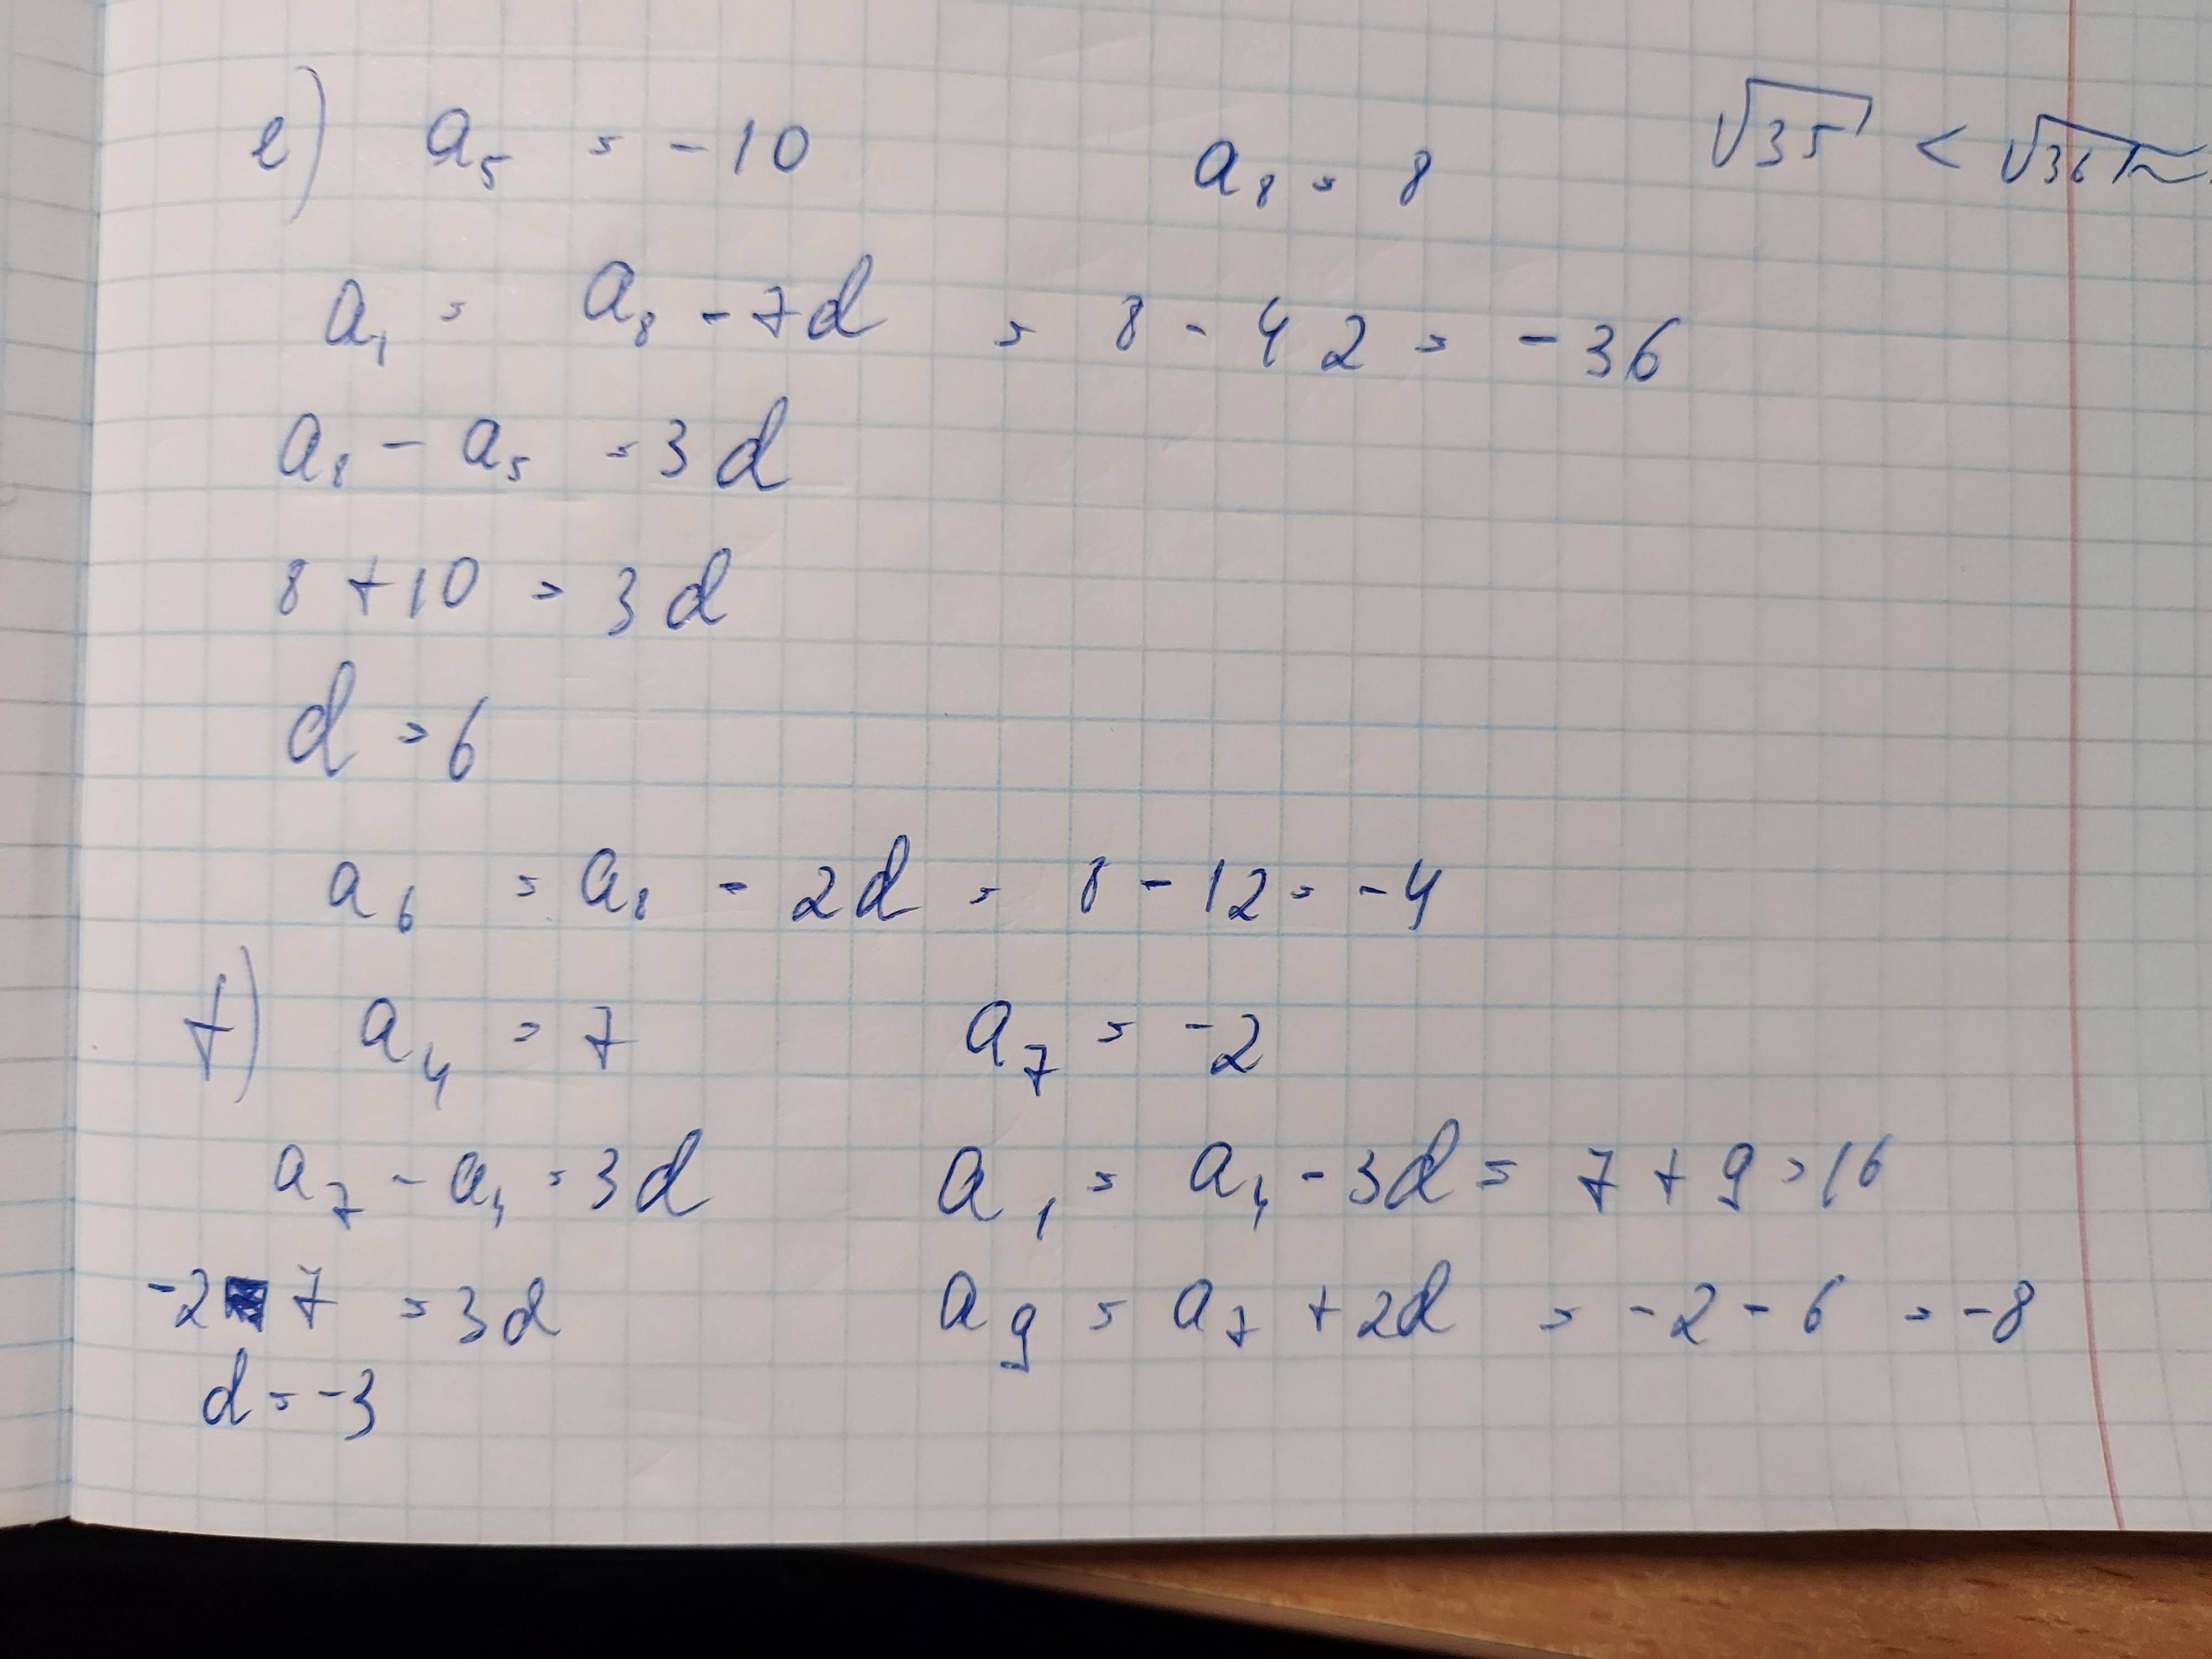 e) a₅ = -10 a₈ = 8 √35 < √36 ≈
a₁ = a₈ - 7d = 8 - 42 = -36
a₈ - a₅ = 3d
8 + 10 = 3d
d = 6
a₆ = a₈ - 2d = 8 - 12 = -4
f) a₄ = 7 a₇ = -2
a₇ - a₄ = 3d a₁ = a₄ - 3d = 7 + 9 = 16
-2 7 = 3d a₉ = a₇ + 2d = -2 - 6 = -8
d = -3